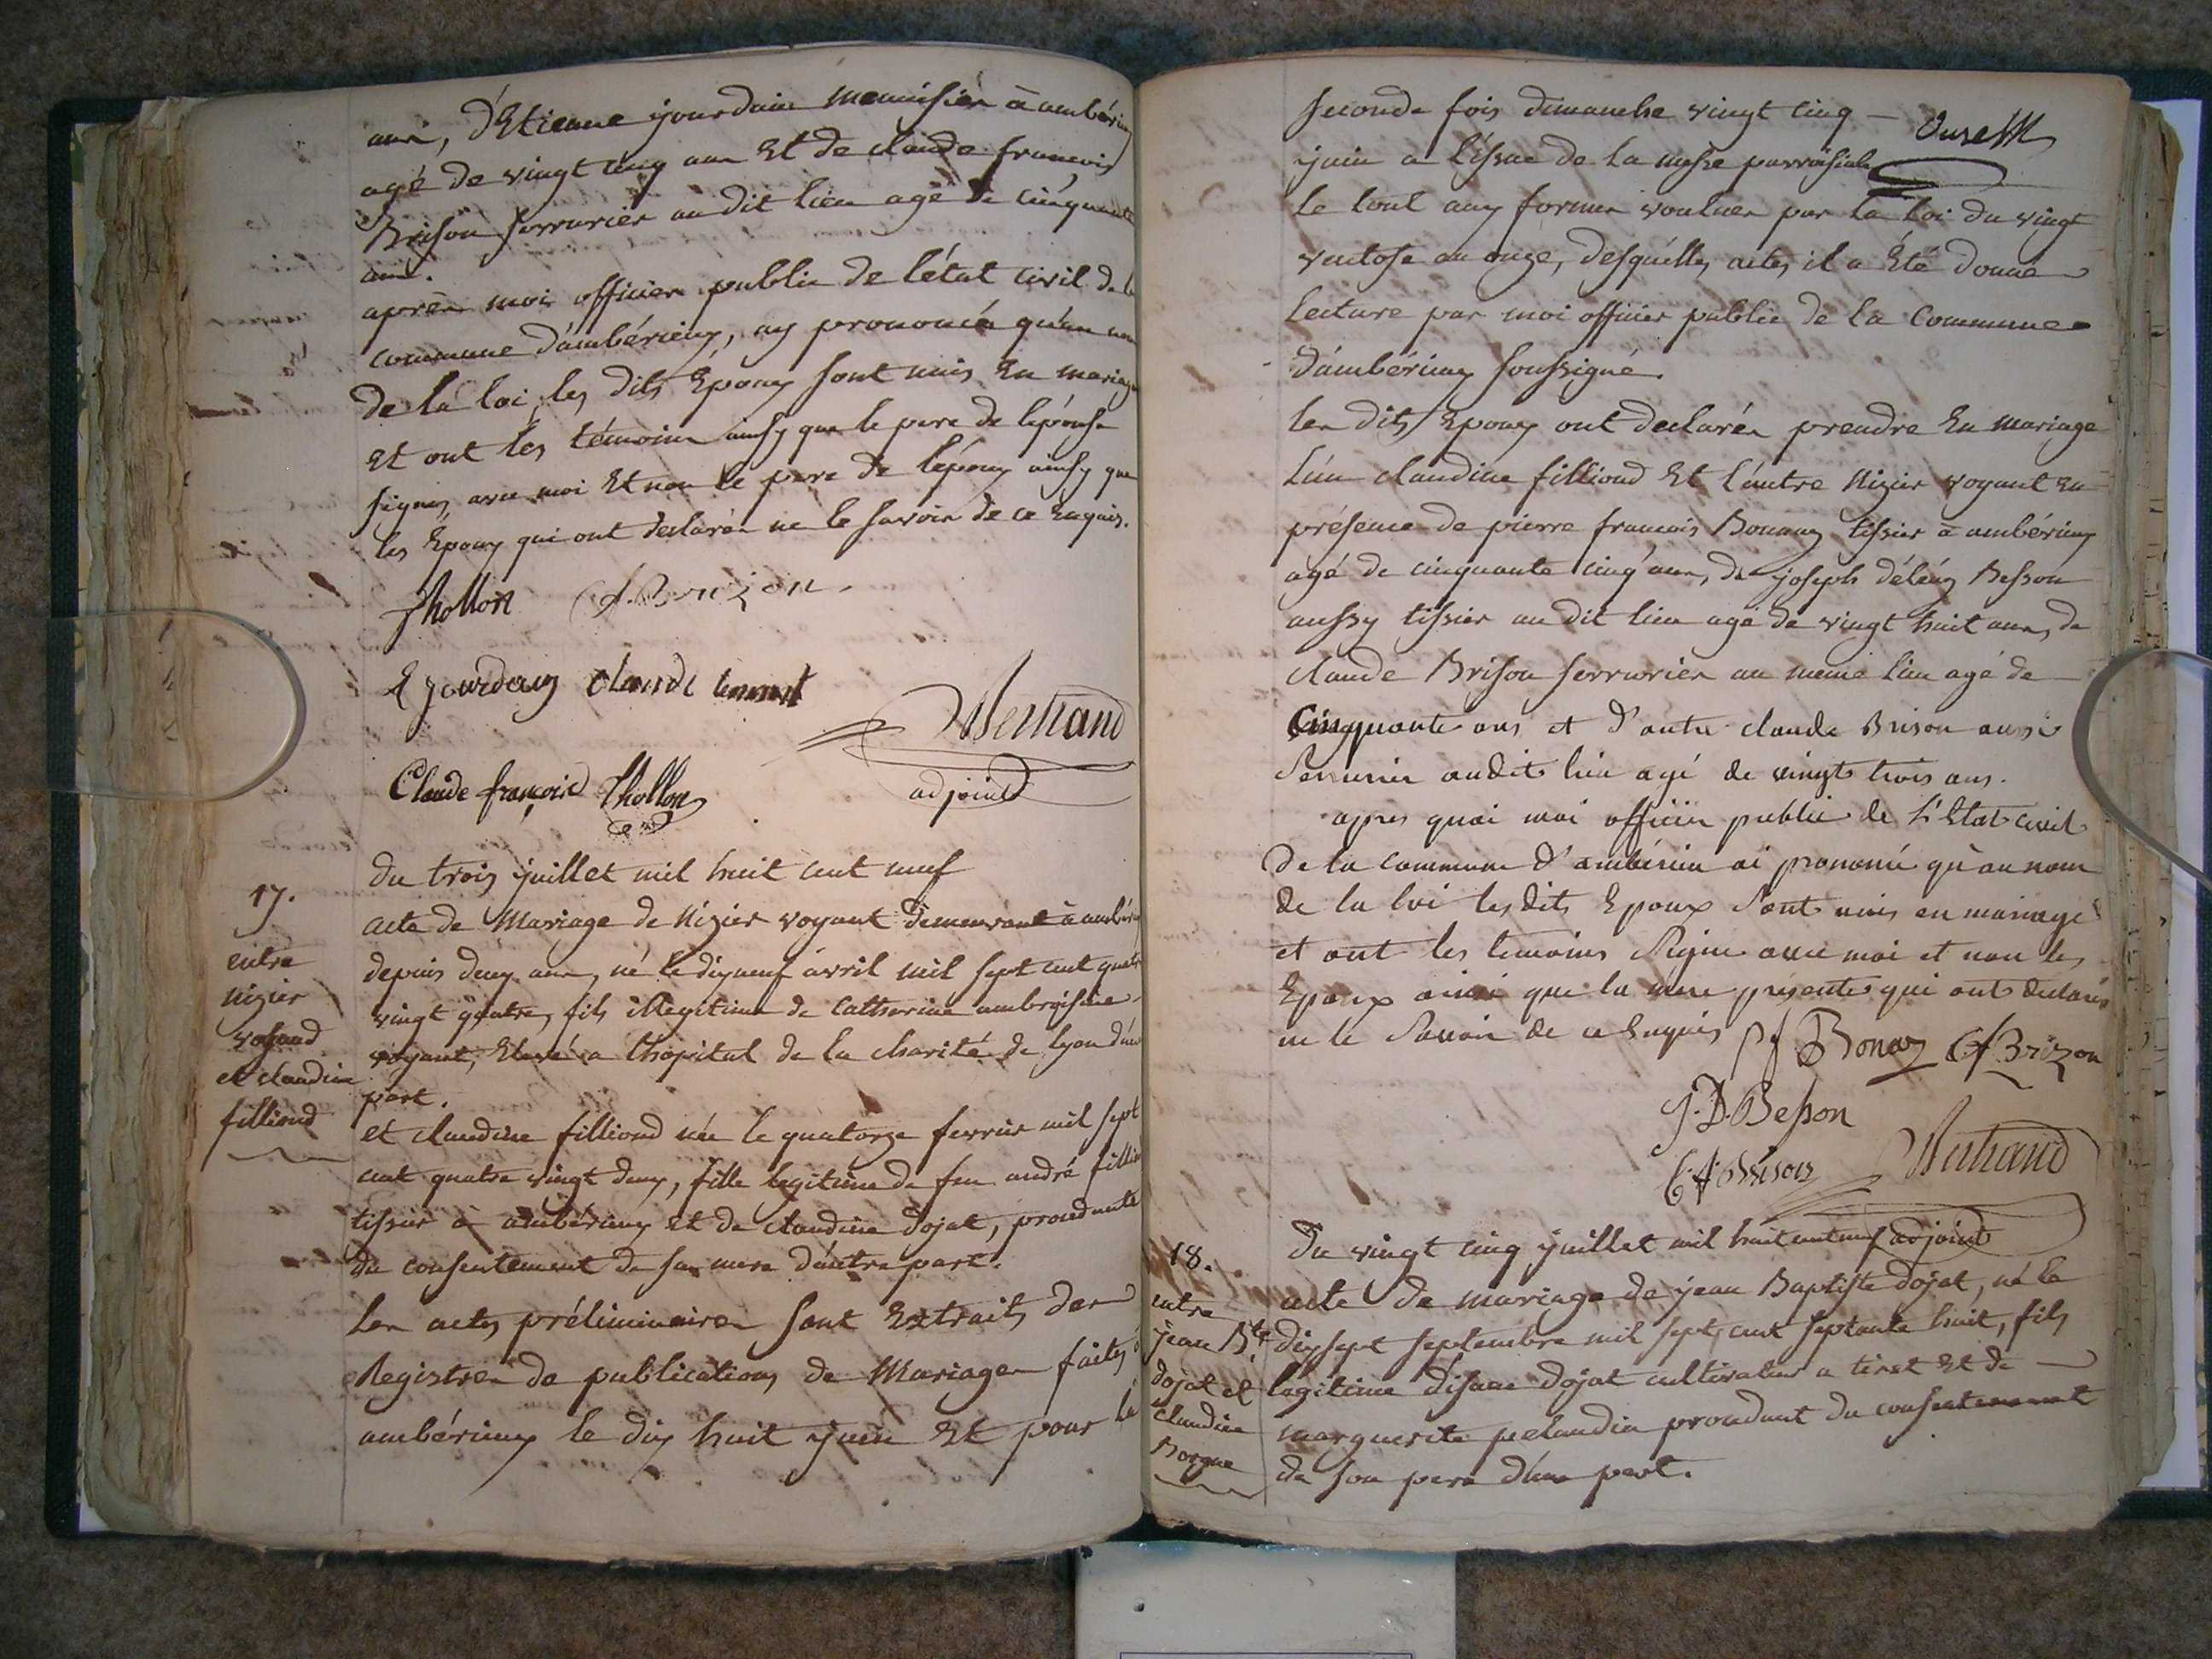 ans, d'Etienne jourdain menuisier à ambérieux
agé de vingt cinq ans Et de claude françois
Brison serrurier au dit lieu agé de cinquante
ans.
après moi officier public de l'état civil de la
commune d'ambérieux, ay prononcés qu'au nom
de la loi, les dits Epoux sont unis En mariage
Et ont les témoins ainsy que le pere de l'épouse
signés avec moi Et non le pere de l'époux ainsy que
les Epoux qui ont déclarés ne le savoir de ce Enquis.
Thollon Cf. Brizon
E jourdain Claude
Bertrand
Claude françois Thollon
adjoint
17.
entre
nizier
voyand
et claudine
filliond
du trois juillet mil huit cent neuf
acte de Mariage de Nizier voyant demeurant à ambérieux
depuis deux ans, né le dix neuf avril mil sept cent quatre
vingt quatre, fils illegitime de Catherine ambroisine
voyant, Elevé a l'hopital de la charité de Lyon d'une
part.
et claudine filliond née le quatorze fevrier mil sept
cent quatre vingt deux, fille legitime de feu andré filliond
tissier à ambérieux Et de claudine Dojat, procedante
du consentement de sa mere d'autre part.
les actes préliminaires sont Extraits des
Registres de publications de Mariages faites à
ambérieux le dix huit juin Et pour la
seconde fois dimanche vingt cinq —
juin a l'issue de la messe parroisiale
le tout aux formes voulues par la loi du vingt
ventose an onze, desquelles actes il a Eté donné
lecture par moi officier public de la Commune
d'ambérieux soussigné.
les dits Epoux ont declarés prendre En mariage
l'un claudine filliond Et l'autre Nizier voyant En
présence de pierre francois Bonaux tissier à ambérieux
agé de cinquante cinq ans, de joseph déléaz Besson
aussy tissier au dit lieu agé de vingt huit ans, de
claude Brison serrurier au meme lieu agé de —
Cinquante ans et d'autre claude Brison aussi
Serrurier audit lieu agé de vingt trois ans.
apres quoi moi officier public de L'Etat civil
de la commune d'ambérieu ai prononcé qu'au nom
de la loi les dits Epoux Sont unis en mariage
et ont les temoins Signé avec moi et non les
Epoux ainsi que la mere présente qui ont declarés
ne le Savoir de ce Enquis pf Bonaz Cf Brizon
J. D. Besson
C f Brison Bertrand
adjoint
18.
entre
jean Bte
dojat et
claudine
Borgne
Du vingt cinq juillet mil huit cent neuf
acte de mariage de jean Baptiste Dojat, né le
dix sept septembre mil sept cent septante huit, fils
legitime d'isaac Dojat cultivateur a tiret Et de —
marguerite pelandin procedant du consentement
de son pere d'une part.